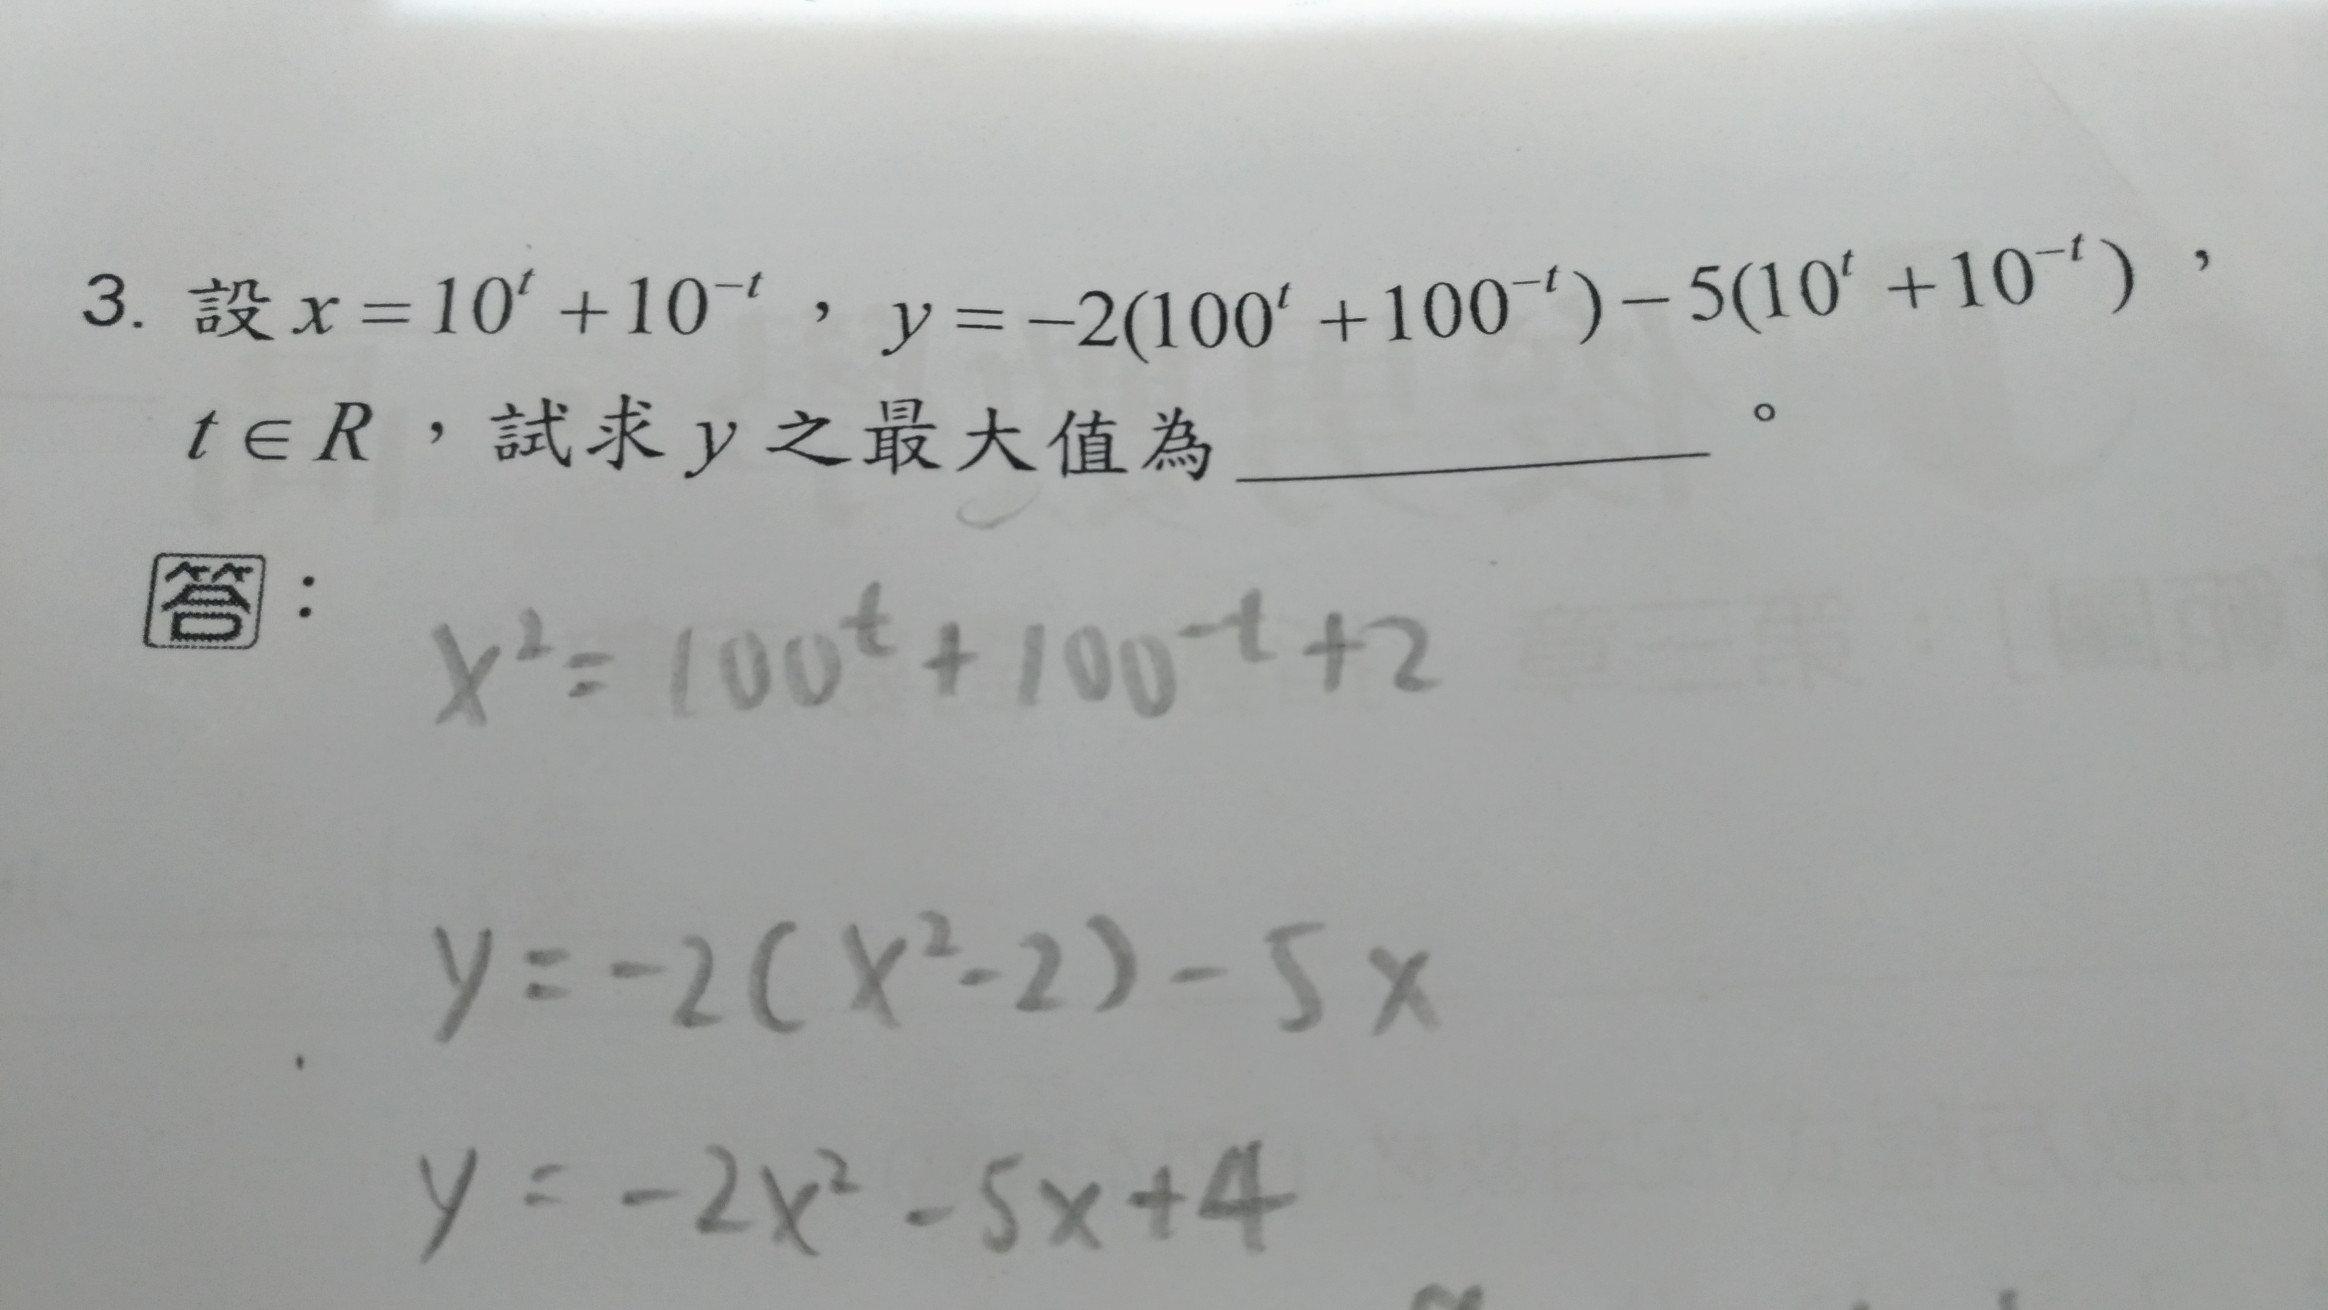 3. 設 x = 10ᵗ + 10⁻ᵗ ， y = −2(100ᵗ + 100⁻ᵗ) − 5(10ᵗ + 10⁻ᵗ) ，
t ∈ R ，試求 y 之最大值為 ________ 。
答：
x² = 100ᵗ + 100⁻ᵗ + 2
y = -2(x² - 2) - 5x
y = -2x² - 5x + 4